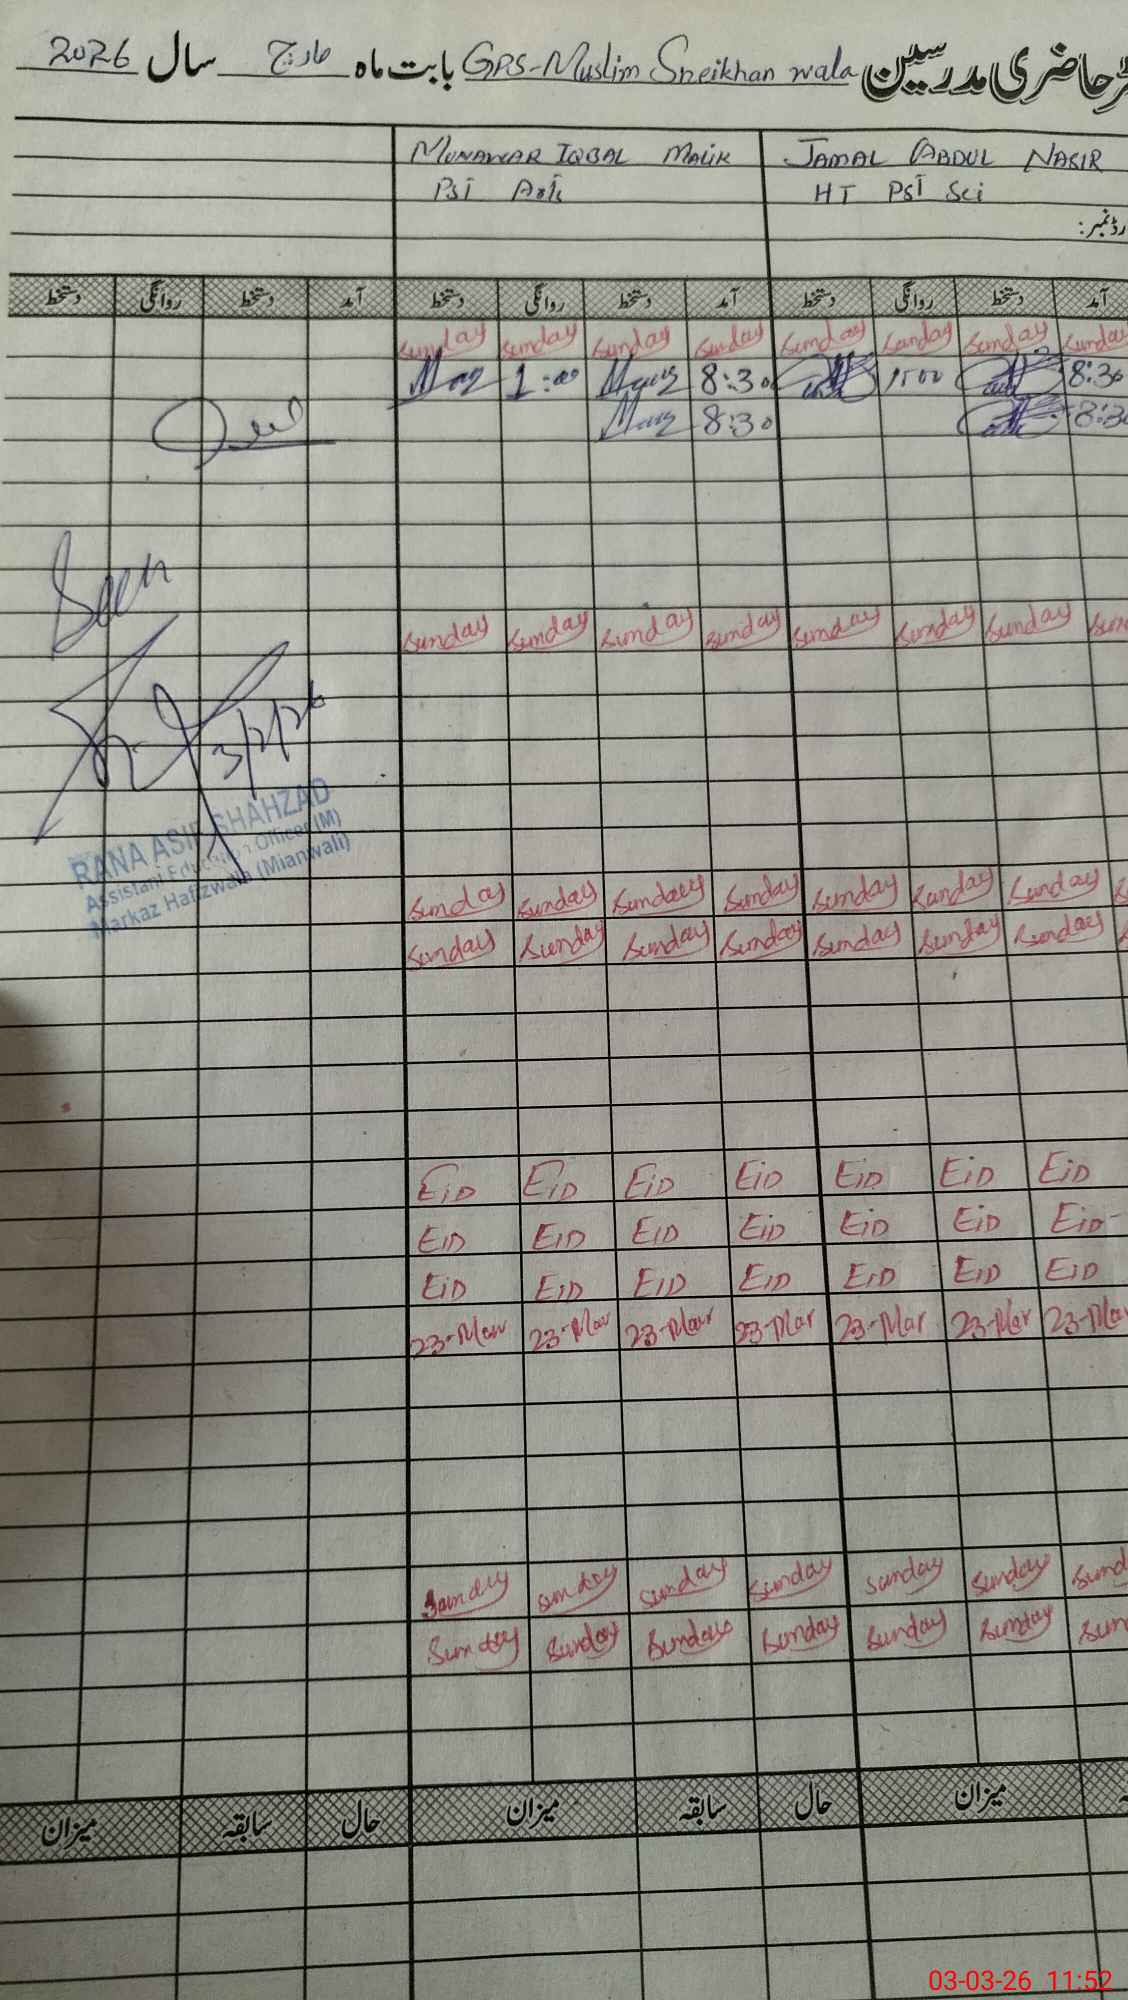 رجسٹر حاضری مدرسین GPS-Muslim Sheikhan wala بابت ماہ مارچ سال 2026
MUNAWAR IQBAL MALIK JAMAL ABDUL NASIR
PST Arts HT PST Sci
آمد دستخط روانگی دستخط آمد دستخط روانگی دستخط آمد دستخط روانگی دستخط
Sunday Sunday Sunday Sunday Sunday Sunday Sunday Sunday
1:00 8:30 1:00 8:30
8:30 8:30
Seen
Sunday Sunday Sunday Sunday Sunday Sunday Sunday
3/2/26
RANA ASIF SHAHZAD
Assistant Education Officer (M)
Markaz Hafizwala (Mianwali)
Sunday Sunday Sunday Sunday Sunday Sunday Sunday
Sunday Sunday Sunday Sunday Sunday Sunday Sunday
EiD EiD EiD EiD EiD EiD EiD
EiD EiD EiD EiD EiD EiD EiD
EiD EiD EiD EiD EiD EiD EiD
23-Mar 23-Mar 23-Mar 23-Mar 23-Mar 23-Mar 23-Mar
Sunday Sunday Sunday Sunday Sunday Sunday
Sunday Sunday Sunday Sunday Sunday Sunday
میزان حال سابقہ میزان حال سابقہ میزان
03-03-26 11:52